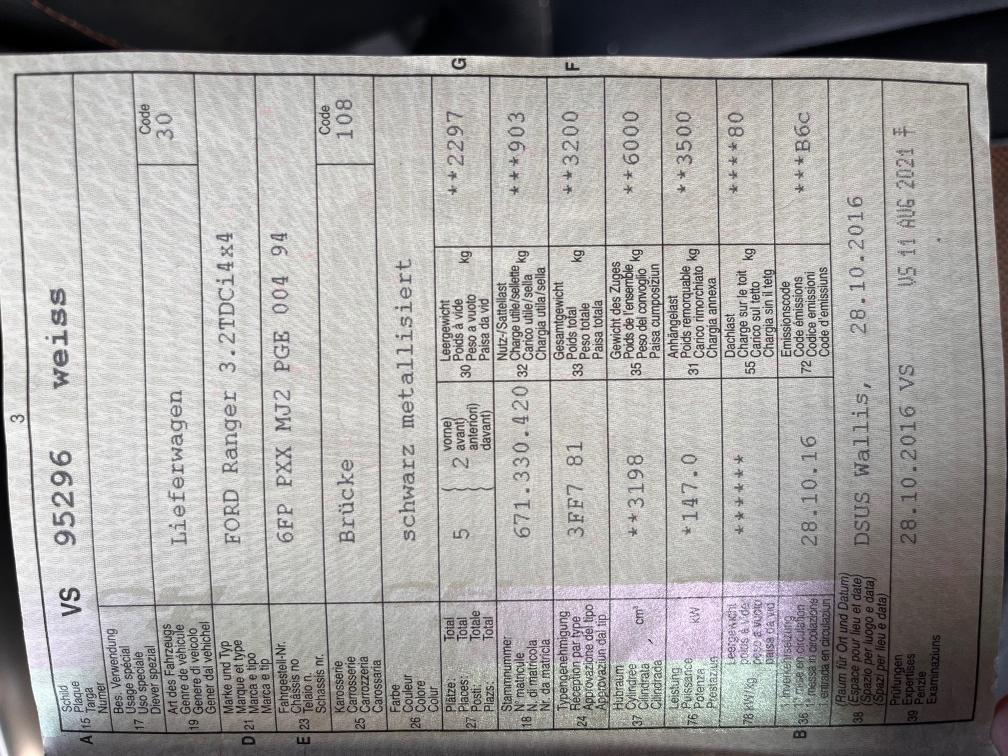 3
A 15 Schild
Plaque
Targa
Numer
VS 95296 weiss
17 Bes. Verwendung
Usage spécial
Uso speciale
Diever spezial
19 Art des Fahrzeugs
Genre de véhicule
Genere di veicolo
Gener dal vehichel
Lieferwagen
Code
30
D 21 Marke und Typ
Marque et type
Marca e tipo
Marca e tip
FORD Ranger 3.2TDCi4x4
E 23 Fahrgestell-Nr.
Châssis no
Telaio n.
Schassis nr.
6FP PXX MJ2 PGE 004 94
25 Karosserie
Carrosserie
Carrozzeria
Carossaria
Brücke
Code
108
26 Farbe
Couleur
Colore
Colur
schwarz metallisiert
27 Plätze: Total
Places: Total
Posti: Totale
Plazs: Total
5 2 vorne)
avant)
anteriori)
davant)
30 Leergewicht
Poids à vide
Peso a vuoto
Paisa da vid
kg
**2297
G
18 Stammnummer
N° matricule
N. di matricola
Nr. da matricla
671.330.420
32 Nutz-/Sattellast
Charge utile/sellette
Carico utile/sella
Chargia utila/sella
kg
***903
24 Typengenehmigung
Réception par type
Approvazione del tipo
Approvaziun dal tip
3FF7 81
33 Gesamtgewicht
Poids total
Peso totale
Paisa totala
kg
**3200
F
37 Hubraum
Cylindrée
Cilindrata
Cilindrada
cm³
**3198
35 Gewicht des Zuges
Poids de l'ensemble
Peso del convoglio
Paisa cumposiziun
kg
**6000
76 Leistung
Puissance
Potenza
Prestaziun
kW
*147.0
31 Anhängelast
Poids remorquable
Carico rimorchiato
Chargia annexa
kg
**3500
78 kW/kg
Leergewicht
poids à vide
peso a vuoto
paisa da vid
******
55 Dachlast
Charge sur le toit
Carico sul tetto
Chargia sin il tetg
kg
****80
B 36 1. Inverkehrsetzung
28.10.16
72 Emissionscode
Code émissions
Codice emissioni
Code d'emissiuns
***B6c
38 (Raum für Ort und Datum)
(Espace pour lieu et date)
(Spazio per luogo e data)
(Spazi per lieu e data)
DSUS Wallis, 28.10.2016
39 Prüfungen
Expertises
Perizie
Examinaziuns
28.10.2016 VS
VS 11 AUG 2021